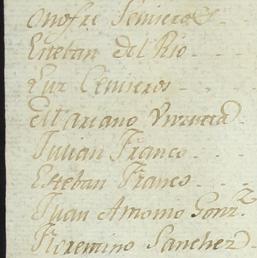 Onofre Seniseros
Esteban del Rio
Luz Ceniseros
Mariano Vrrueta
Julian Franco
Esteban Franco
Juan Antonio Gonz.z
Florentino Sanchez